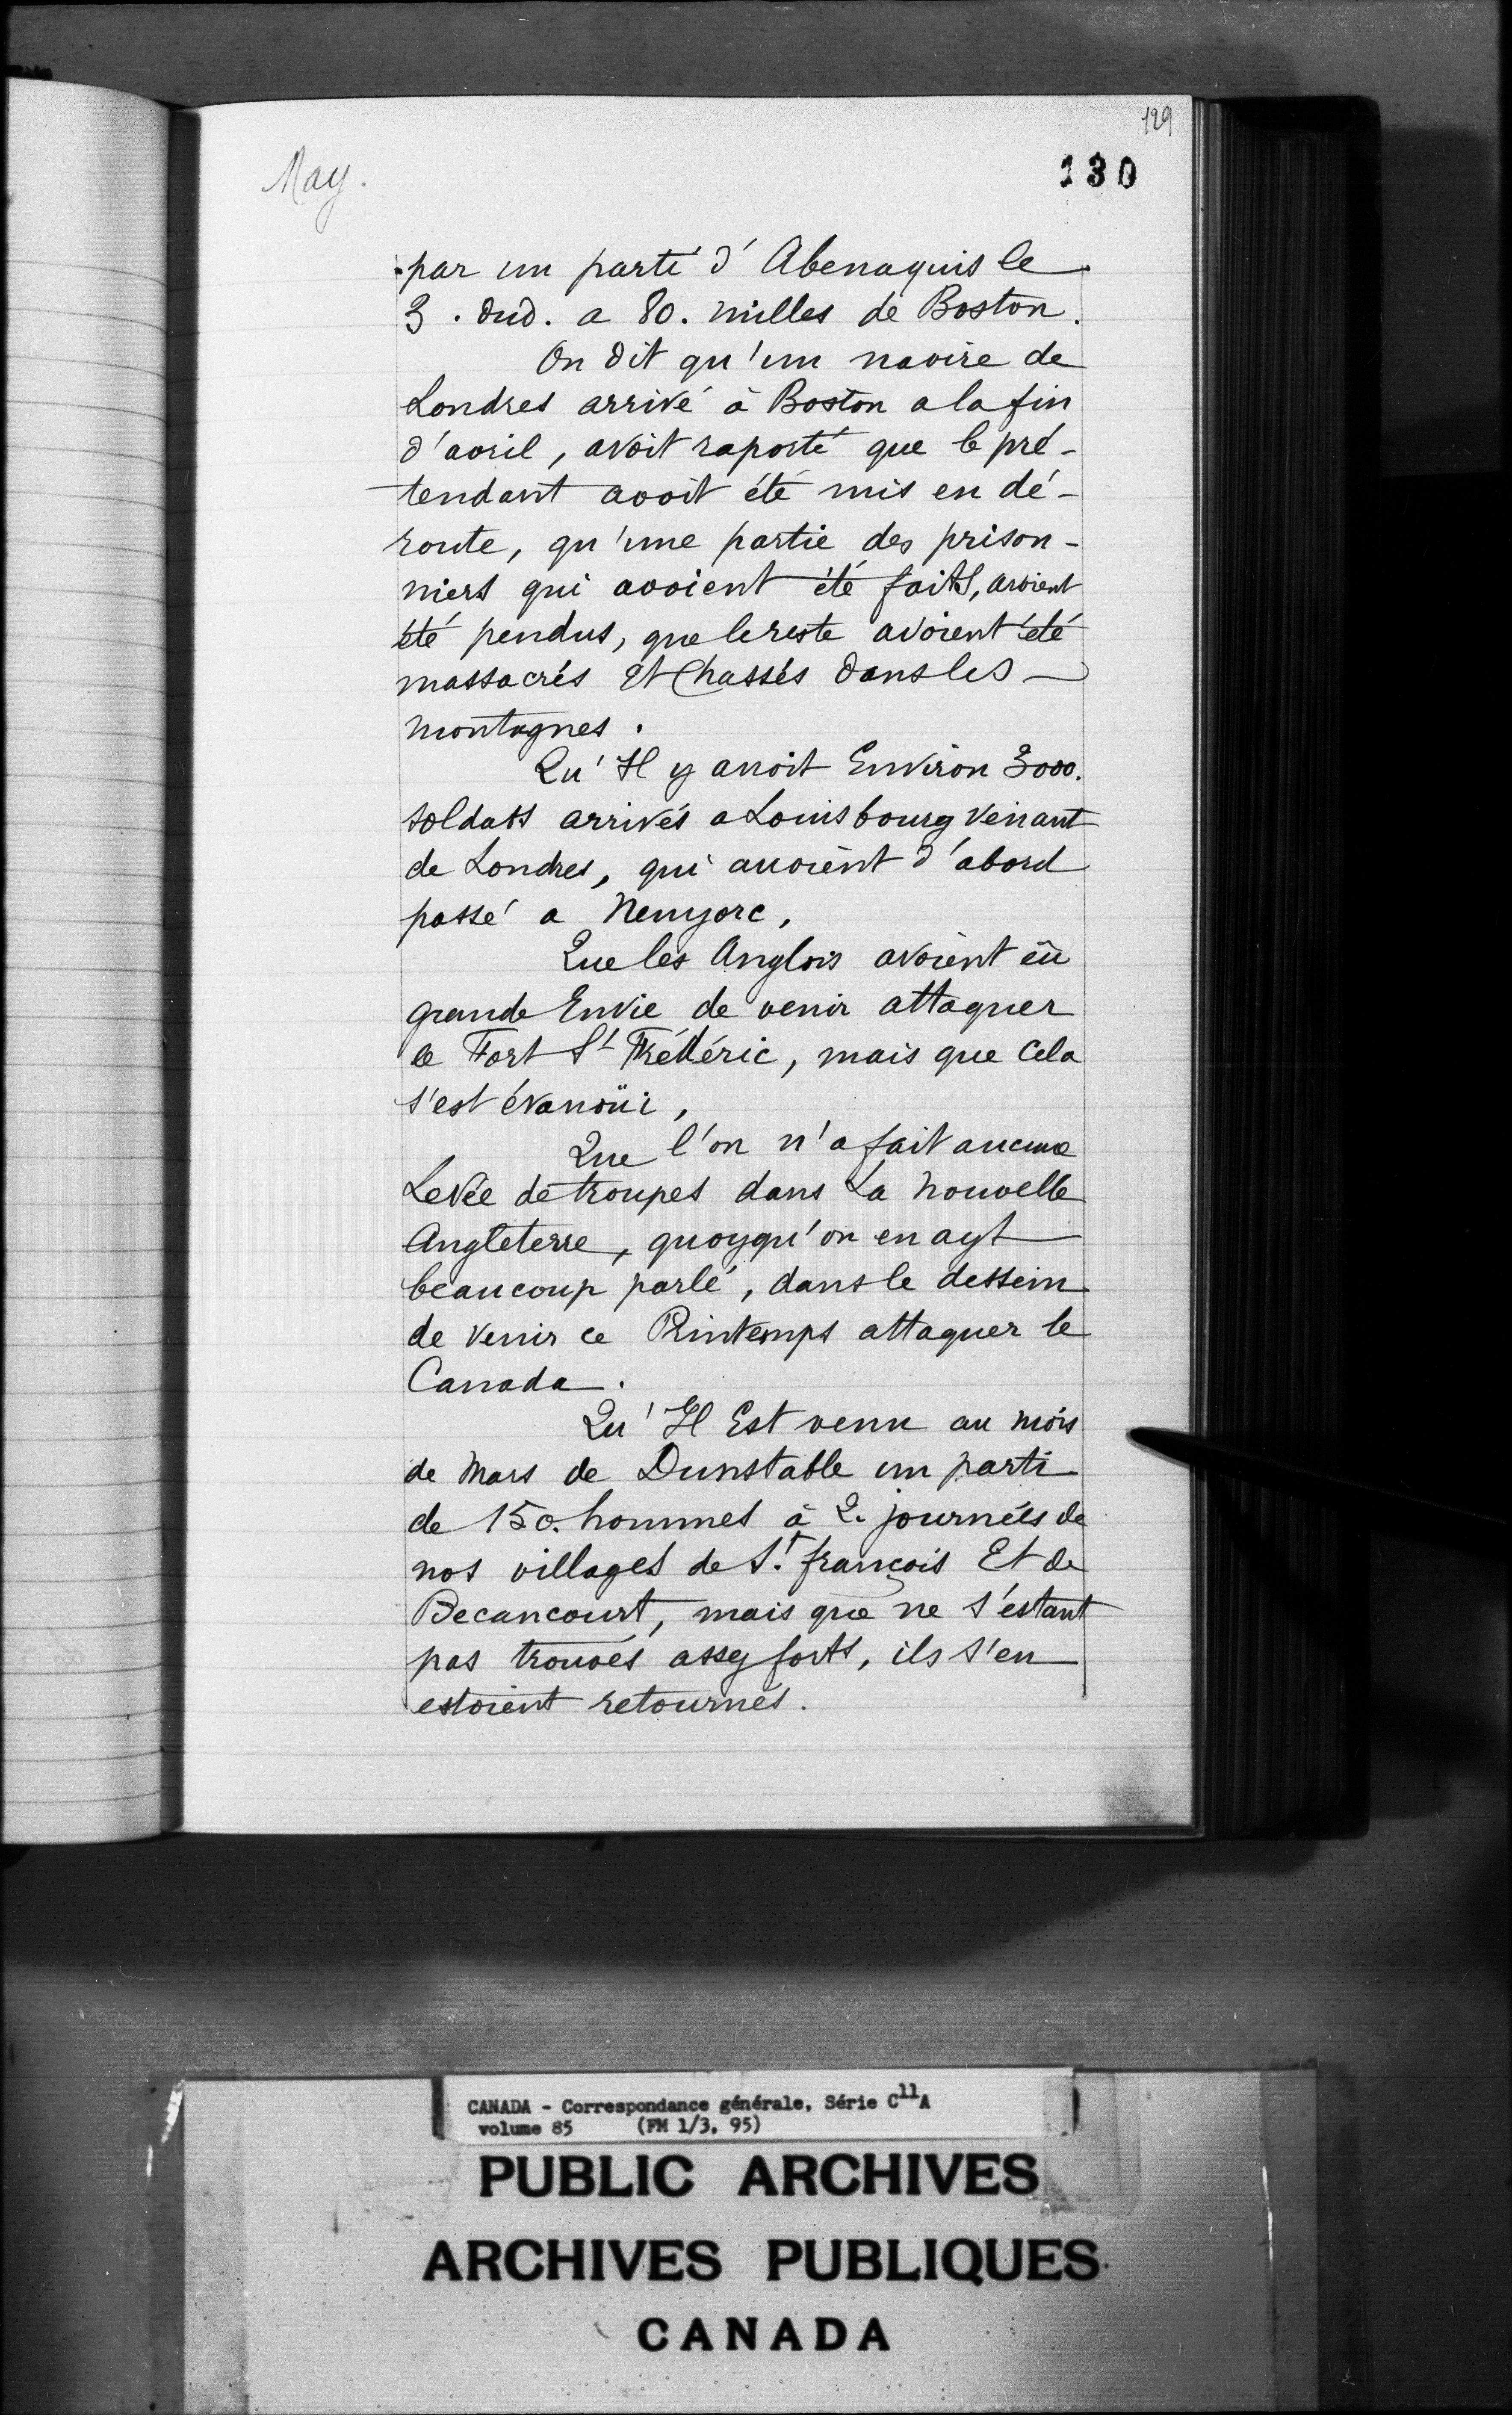 129
130
May.
par un parti d'Abenaquis le
3. dud. a 80. milles de Boston.
On dit qu'un navire de
Londres arrivé à Boston a la fin
d'avril, avoit raporté que le pré-
tendant avoit été mis en dé-
route, qu'une partie des prison-
niers qui avoient été faits, avoient
été pendus, que le reste avoient été
massacrés Et Chassés dans les
montagnes.
Qu'Il y avoit Environ 3000.
soldats arrivés a Louisbourg venant
de Londres, qui avoient d'abord
passé a Neuyorc,
Que les Anglois avoient eü
grande Envie de venir attaquer
le Fort St Frédéric, mais que Cela
s'est évanoüi,
Que l'on n'a fait aucune
Levée de troupes dans La nouvelle
Angleterre, quoyqu'on en ayt
beaucoup parlé, dans le dessein
de venir ce Printemps attaquer le
Canada.
Qu'Il Est venu au mois
de Mars de Dunstable un parti
de 150. hommes à 2. journées de
nos villages de St. françois Et de
Becancourt, mais que ne s'estant
pas trouvés assez forts, ils s'en
estoient retournés.
CANADA - Correspondance générale, Série C11A
volume 85 (FM 1/3, 95)
PUBLIC ARCHIVES
ARCHIVES PUBLIQUES
CANADA